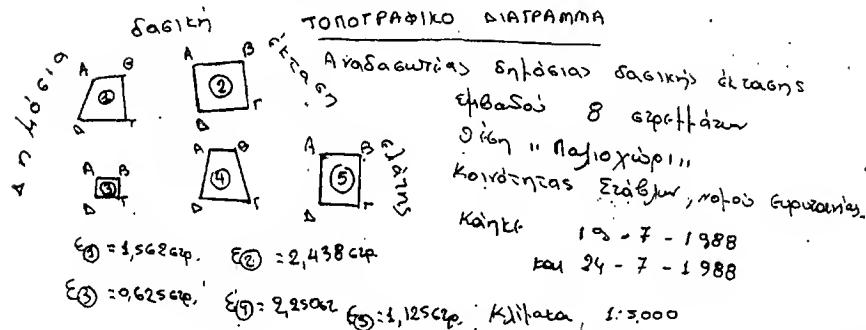 ΤΟΠΟΓΡΑΦΙΚΟ ΔΙΑΓΡΑΜΜΑ
Αναδασωτέας δημόσιας δασικής έκτασης
εμβαδού 8 στρεμμάτων
θέση "Παλιοχώρι"
Κοινότητας Στάβλων, νομού Ευρυτανίας.
Κάηκε 19-7-1988
και 24-7-1988
Δημόσια δασική έκταση ελάτης
Α Β
1
Δ Γ
Α Β
2
Δ Γ
Α Β
3
Δ Γ
Α Β
4
Δ Γ
Α Β
5
Δ Γ
Ε1 = 1,562 στρ. Ε2 = 2,438 στρ.
Ε3 = 0,625 στρ. Ε4 = 2,250 στ Ε5 = 1,125 στρ. Κλίματα 1:5,000